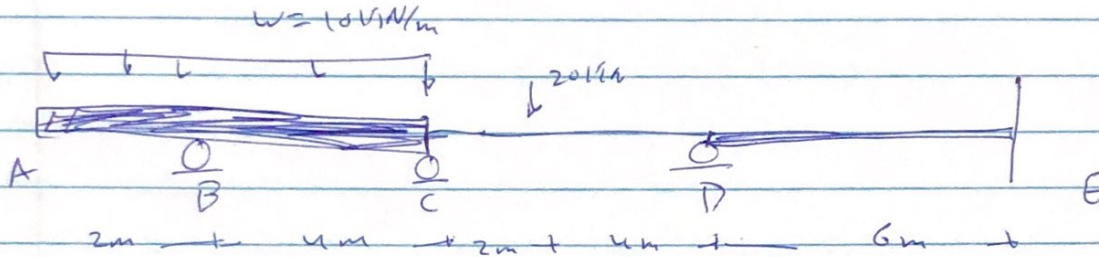 w = 10 kN/m
20 kN
A B C D E
2m 4m 2m 4m 6m